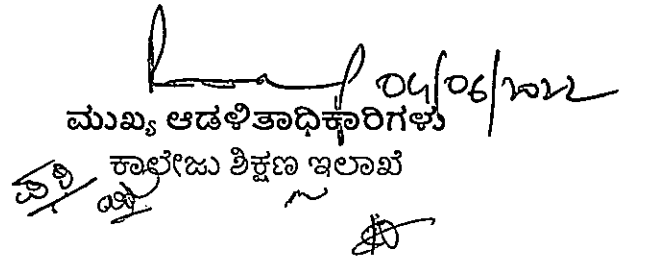 04/06/2022
ಮುಖ್ಯ ಆಡಳಿತಾಧಿಕಾರಿಗಳು
ಕಾಲೇಜು ಶಿಕ್ಷಣ ಇಲಾಖೆ